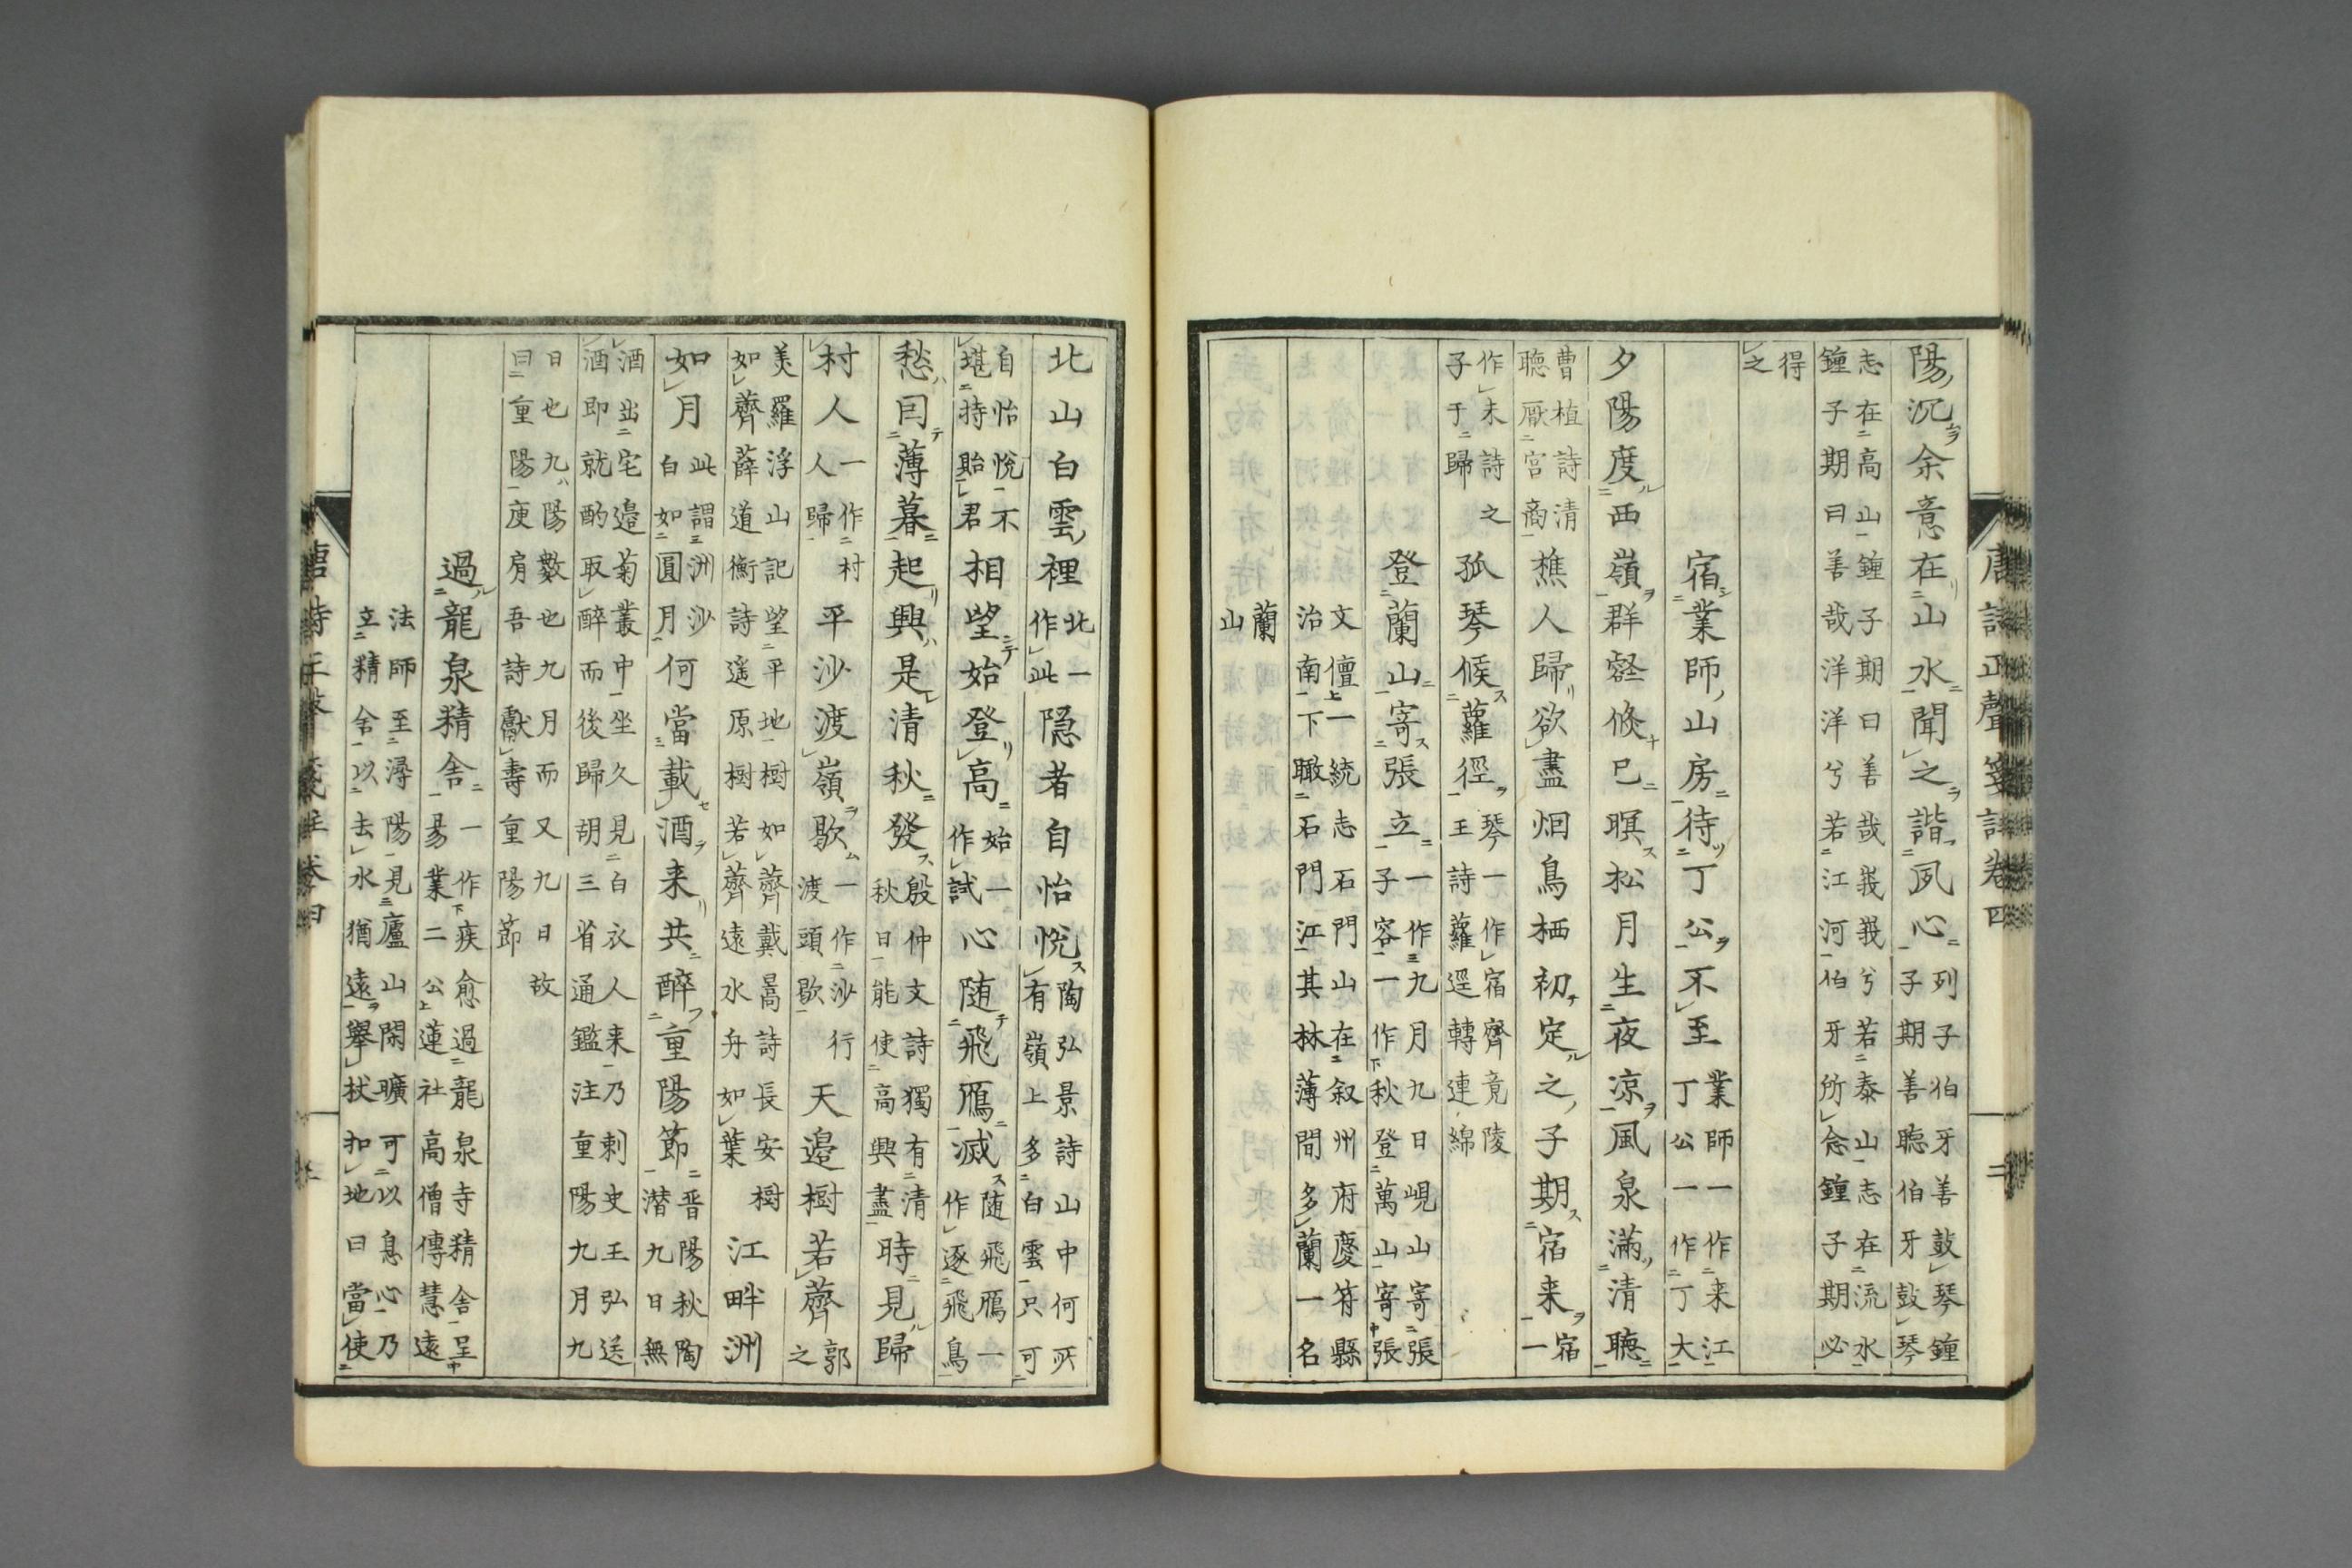 唐詩正聲箋註卷四 二
陽沉余意在山水聞之諧夙心
列子伯牙善鼓琴鍾
子期善聽伯牙鼓琴
志在高山鍾子期曰善哉峩峩兮若泰山志在流水
鍾子期曰善哉洋洋兮若江河伯牙所念鍾子期必
得
之
宿業師山房待丁公不至
業師一作来江
丁公一作丁大
夕陽度西嶺群壑倏已暝松月生夜凉風泉滿清聽
曹植詩清
聽厭宮商
樵人歸欲盡烟鳥栖初定之子期宿来
宿
一
作未詩之
子于歸
孤琴候蘿徑
琴一作宿齊竟陵
王詩蘿逕轉連綿
登蘭山寄張立
一作九月九日峴山寄張
子容一作秋登萬山寄張
文儃一統志石門山在叙州府慶符縣
治南下瞰石門江其林薄間多蘭一名
蘭
山
北山白雲裡
北一
作此
隠者自怡悅
陶弘景詩山中何所
有嶺上多白雲只可
自怡悅不
堪持貽君
相望始登高
始一
作試
心随飛鴈滅
随飛鴈一
作逐飛鳥
愁因薄暮起興是清秋發
殷仲文詩獨有清
秋日能使高興盡
時見歸
村人
一作村
人歸
平沙渡嶺歇
一作沙行
渡頭歇
天邉樹若薺
郭
之
美羅浮山記望平地樹如薺戴暠詩長安樹
如薺薛道衡詩遥原樹若薺遠水舟如葉
江畔洲
如月
此謂洲沙
白如圓月
何當載酒来共醉重陽節
晋陽秋陶
潜九日無
酒出宅邉菊叢中坐久見白衣人来乃剌史王弘送
酒即就酌取醉而後歸胡三省通鑑注重陽九月九
日也九陽數也九月而又九日故
曰重陽庾肩吾詩獻壽重陽節
過龍泉精舍
一作疾愈過龍泉寺精舍呈
易業二公蓮社高僧傳慧遠
法師至潯陽見廬山閑曠可以息心乃
立精舍以去水猶遠舉杖扣地曰當使